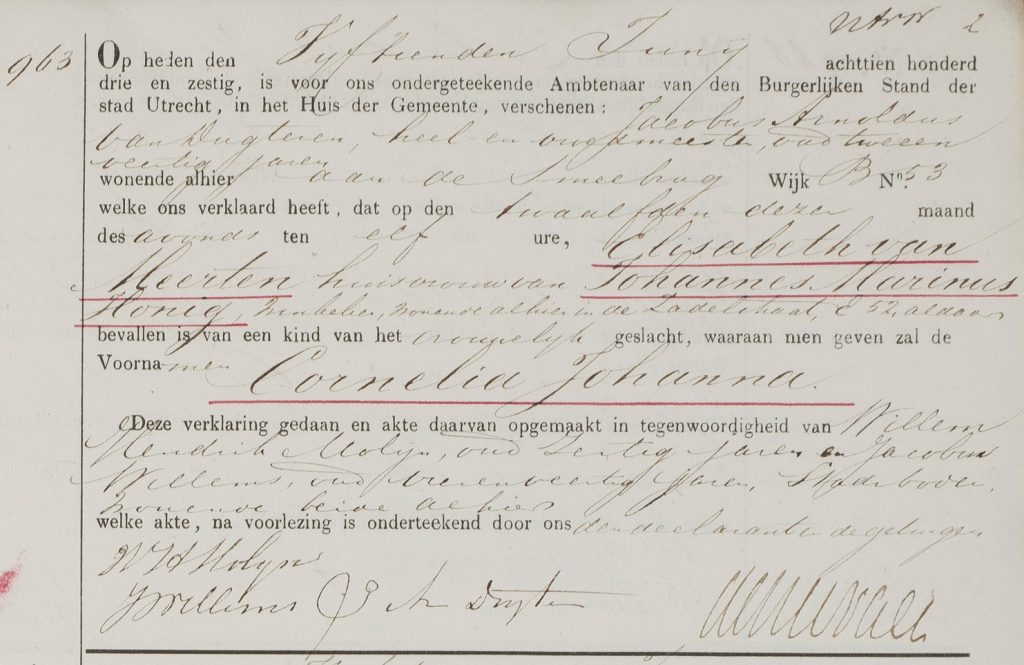 2
963 Op heden den Vyftienden Juny achttien honderd
drie en zestig, is voor ons ondergeteekende Ambtenaar van den Burgerlijken Stand der
stad Utrecht, in het Huis der Gemeente, verschenen: Jacobus Arnoldus
van Dugteren, heel- en vroedmeester, oud tweeen
veertig jaren
wonende alhier aan de Smeebrug Wijk B No. 53
welke ons verklaard heeft, dat op den twaalfden dezer maand
des avonds ten elf ure, Elisabeth van
Meerten huisvrouw van Johannes Marinus
Honig, wonende alhier in de Zadelstraat, E 52, aldaar
bevallen is van een kind van het vrouwelyk geslacht, waaraan men geven zal de
Voornamen Cornelia Johanna.
Deze verklaring gedaan en akte daarvan opgemaakt in tegenwoordigheid van Willem
Hendrik Molyn, oud Dertig jaren en Jacobus
Willems, oud vierenveertig Jaren, Stadsboden,
wonende beide alhier
welke akte, na voorlezing is onderteekend door ons den declarant en de getuigen
W H Molyn
J Willems